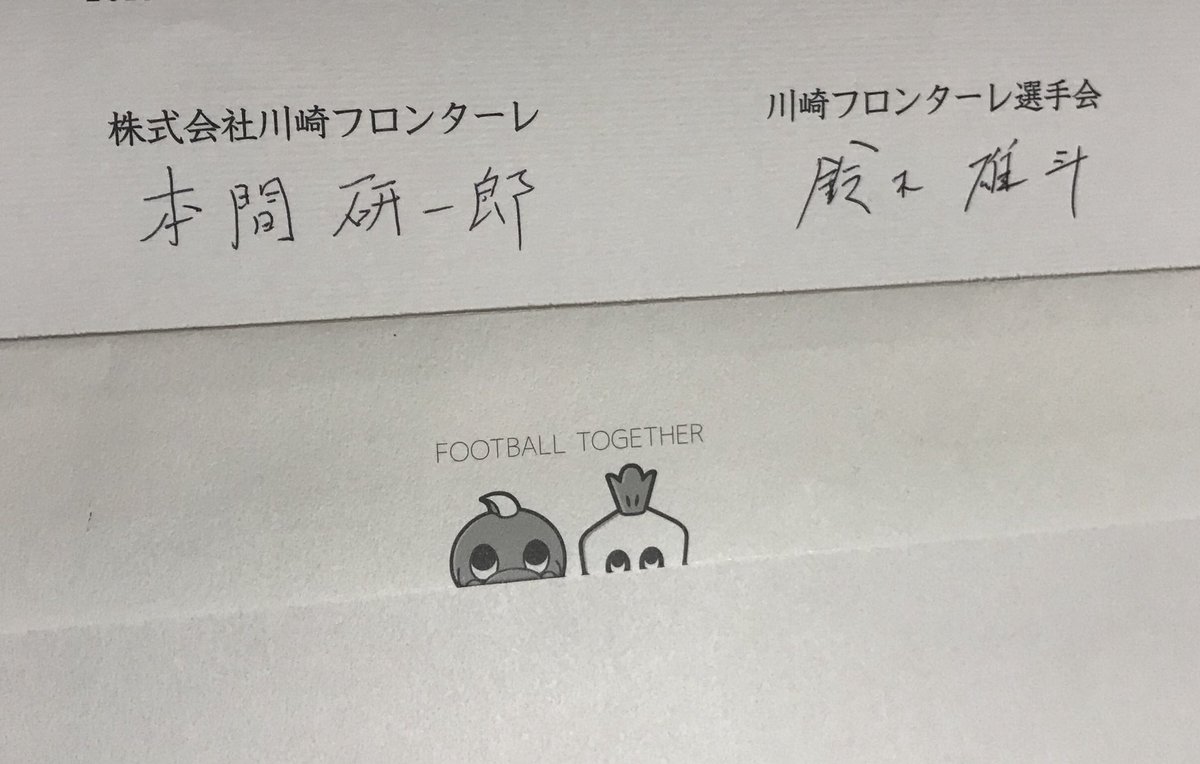 株式会社川崎フロンターレ
本間 研一郎
川崎フロンターレ選手会
鈴木 雄斗
FOOTBALL TOGETHER